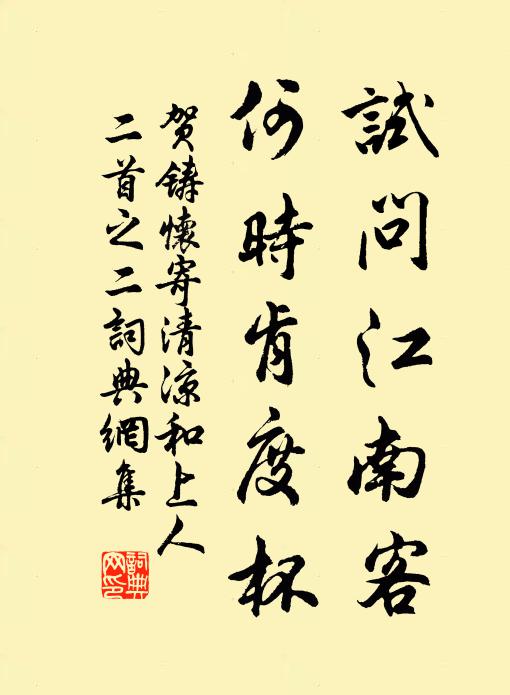 試問江南客
何時肯度杯
贺鑄懷寄清凉和上人
二首之二詞典網集
詞典
网印